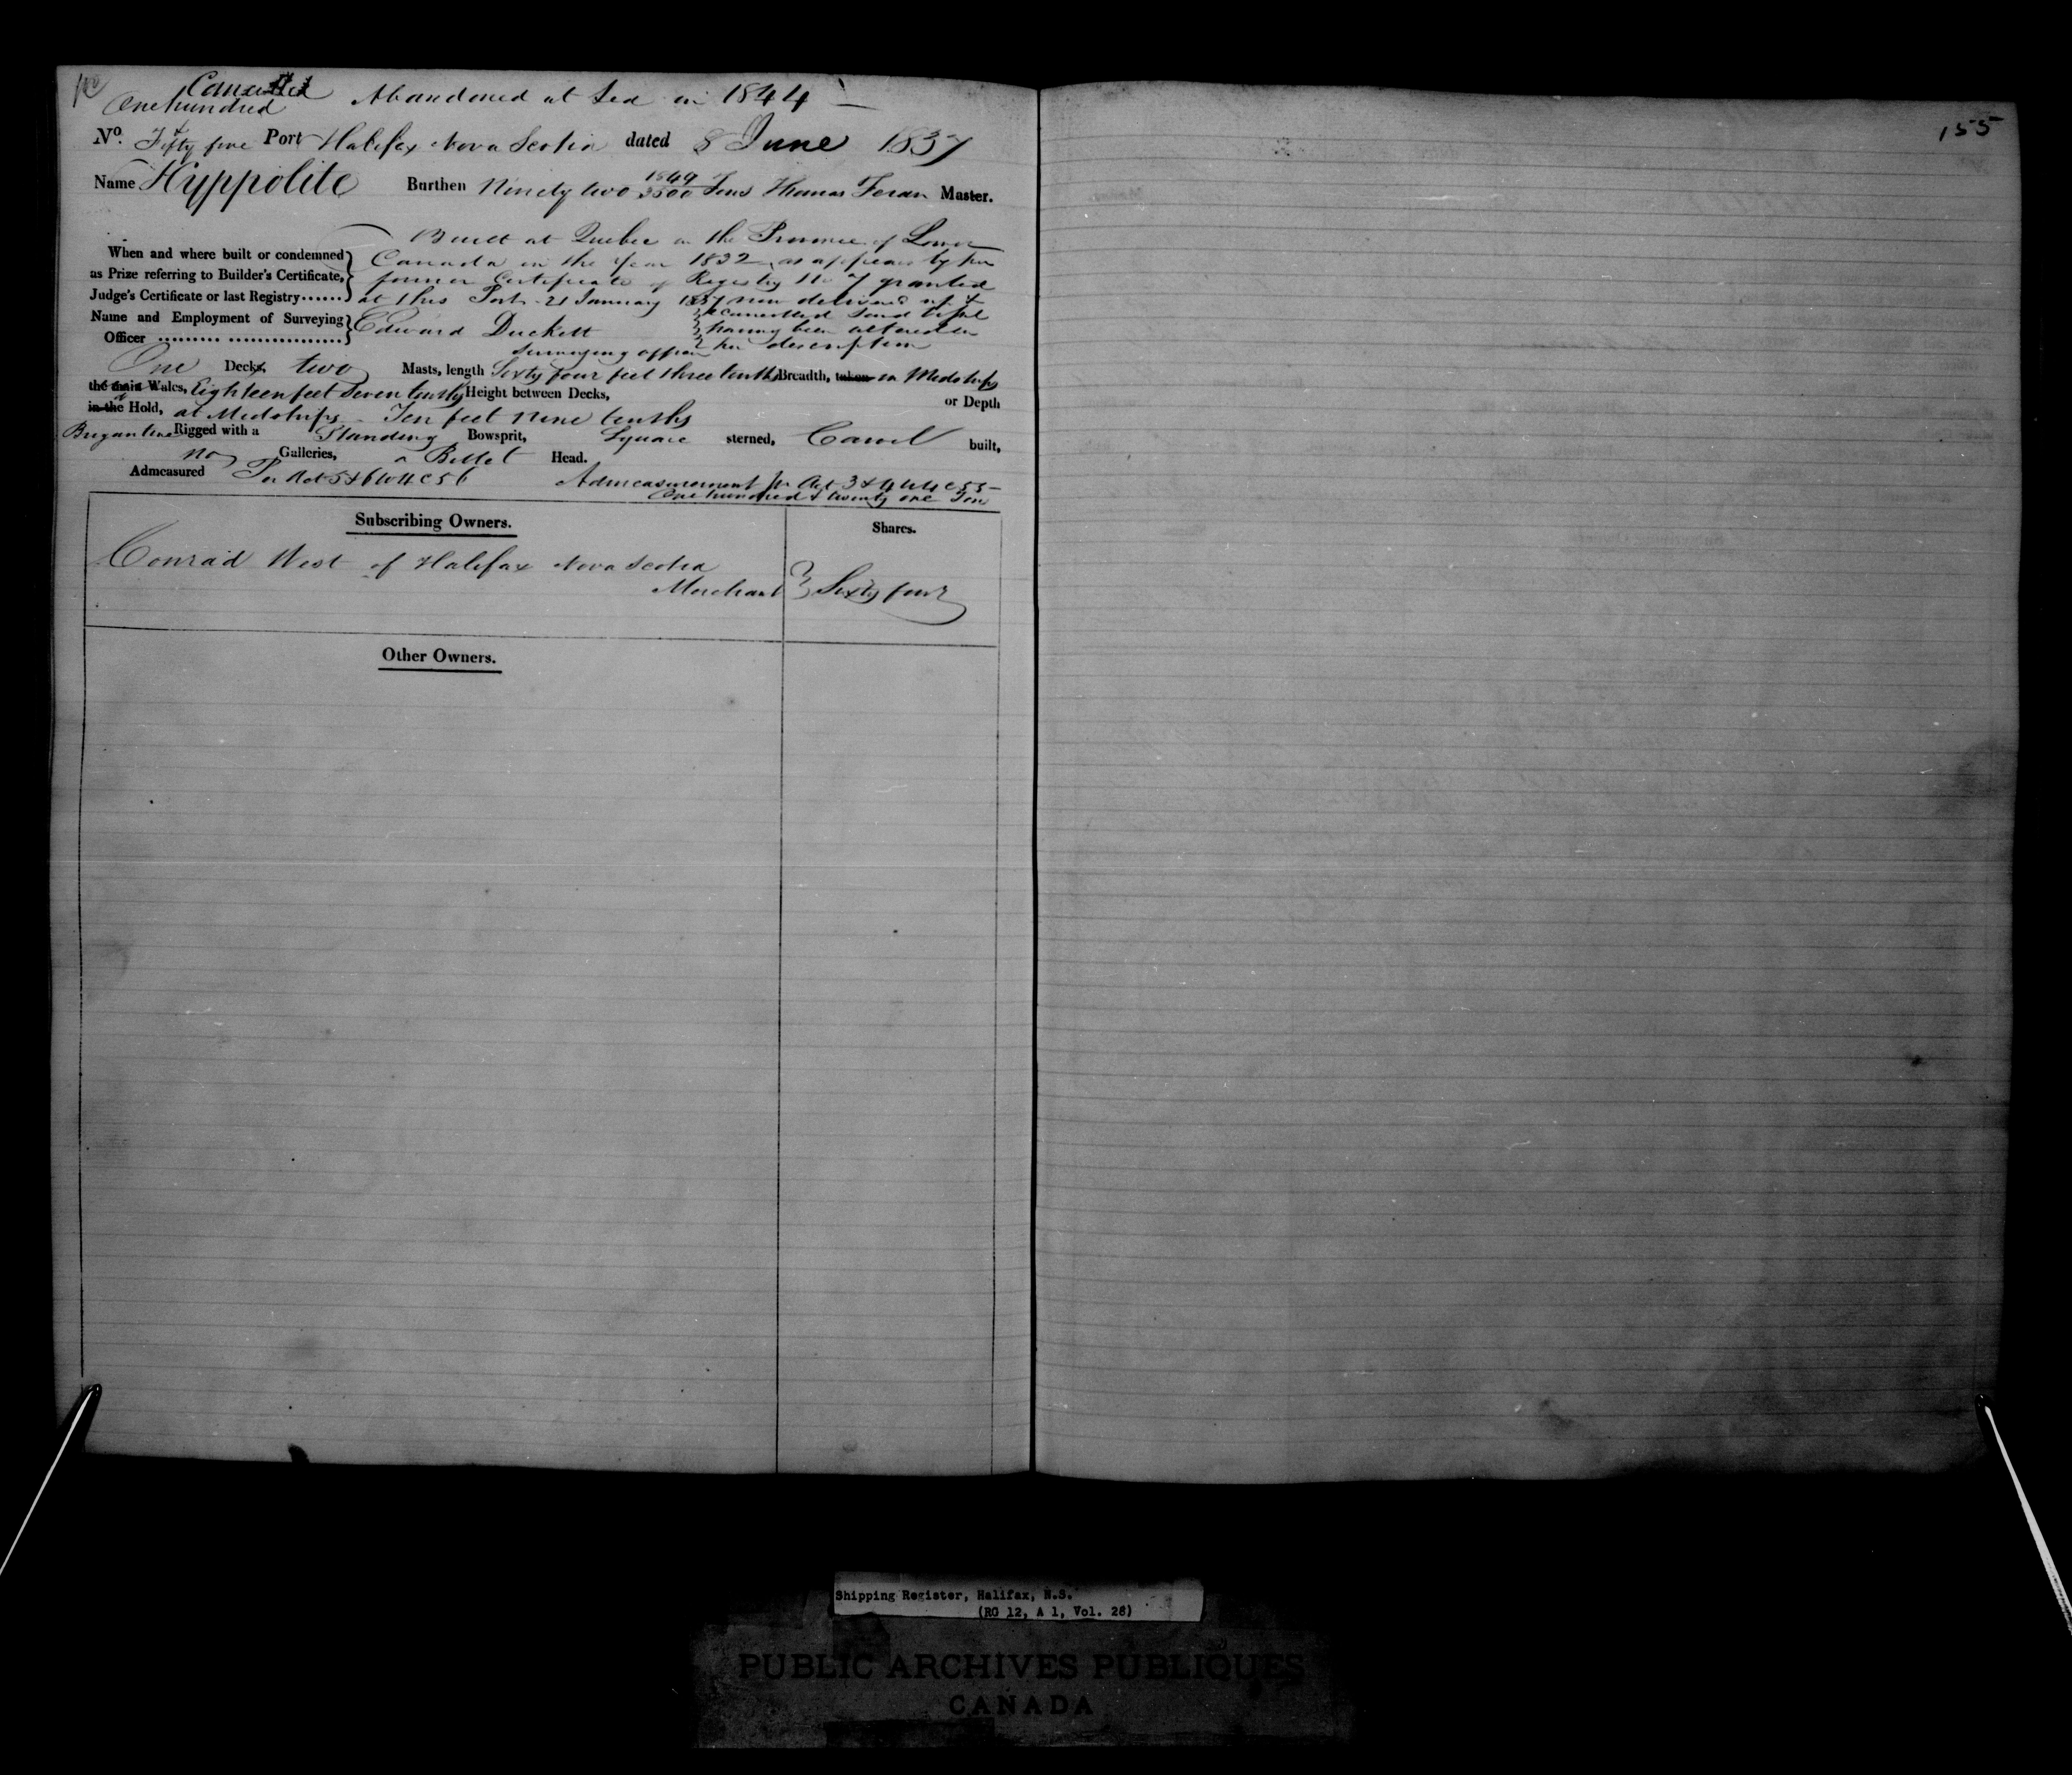 Cancelled Abandoned at Sea in 1844
One hundred
&
No. Fifty five Port Halifax Nova Scotia dated 8 June 1837
Name Hyppolite Burthen Ninety two 1849/3500 Tons Thomas Foran Master.
Built at Quebec in the Province of Lower
When and where built or condemned Canada in the Year 1832 as appears by her
as Prize referring to Builder's Certificate, former Certificate of Registry No 7 granted
Judge's Certificate or last Registry...... at this Port 21 January 1837 now delivered up &
Name and Employment of Surveying Edward Duckett cancelled said Vessel
Officer ......... ................ having been altered in
Surveying officer her description
One Decks, two Masts, length Sixty four feet three tenths Breadth, taken in Midships
the main Wales, Eighteen feet Seven tenths Height between Decks, or Depth
in the Hold, at Midships Ten feet nine tenths
Brigantine Rigged with a Standing Bowsprit, Square sterned, Carvel built,
no Galleries, a Billet Head.
Admeasured Per Act 5 & 6 W 4 C 56 Admeasurement pr Act 3 & 4 W 4 C 55
One hundred & twenty one Tons
Subscribing Owners. Shares.
Conrad West of Halifax Nova Scotia
Merchant Sixty four
Other Owners.
155
Shipping Register, Halifax, N.S.
(RG 12, A 1, Vol. 28)
PUBLIC ARCHIVES PUBLIQUES
CANADA